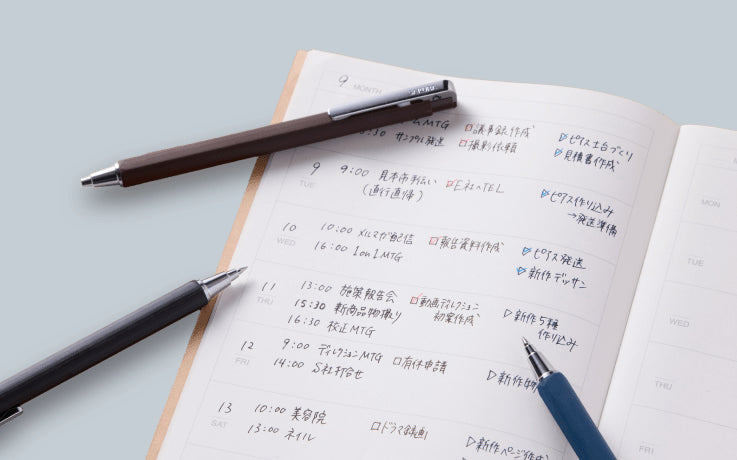 9 MONTH
ムMTG □議事録作成 ▷ピアス土台づくり
サンプル発送 □撮影依頼 ▷見積書作成
9 TUE 9:00 見本市手伝い □E社へTEL ▷ピアス作り込み
(直行直帰) →発送準備
10 WED 10:00 メルマガ配信 □報告資料作成 ▷ピアス発送
16:00 1on1MTG ▷新作デッサン
11 THU 13:00 施策報告会 □動画ディレクション ▷新作5種
15:30 新商品物撮り 初案作成 作り込み
16:30 校正MTG
12 FRI 9:00 ディレクションMTG □有休申請 ▷新作
14:00 S社打合せ
13 SAT 10:00 美容院 □ドラマ録画 ▷新作ページ作成
13:00 ネイル
MON
TUE
WED
THU
FRI